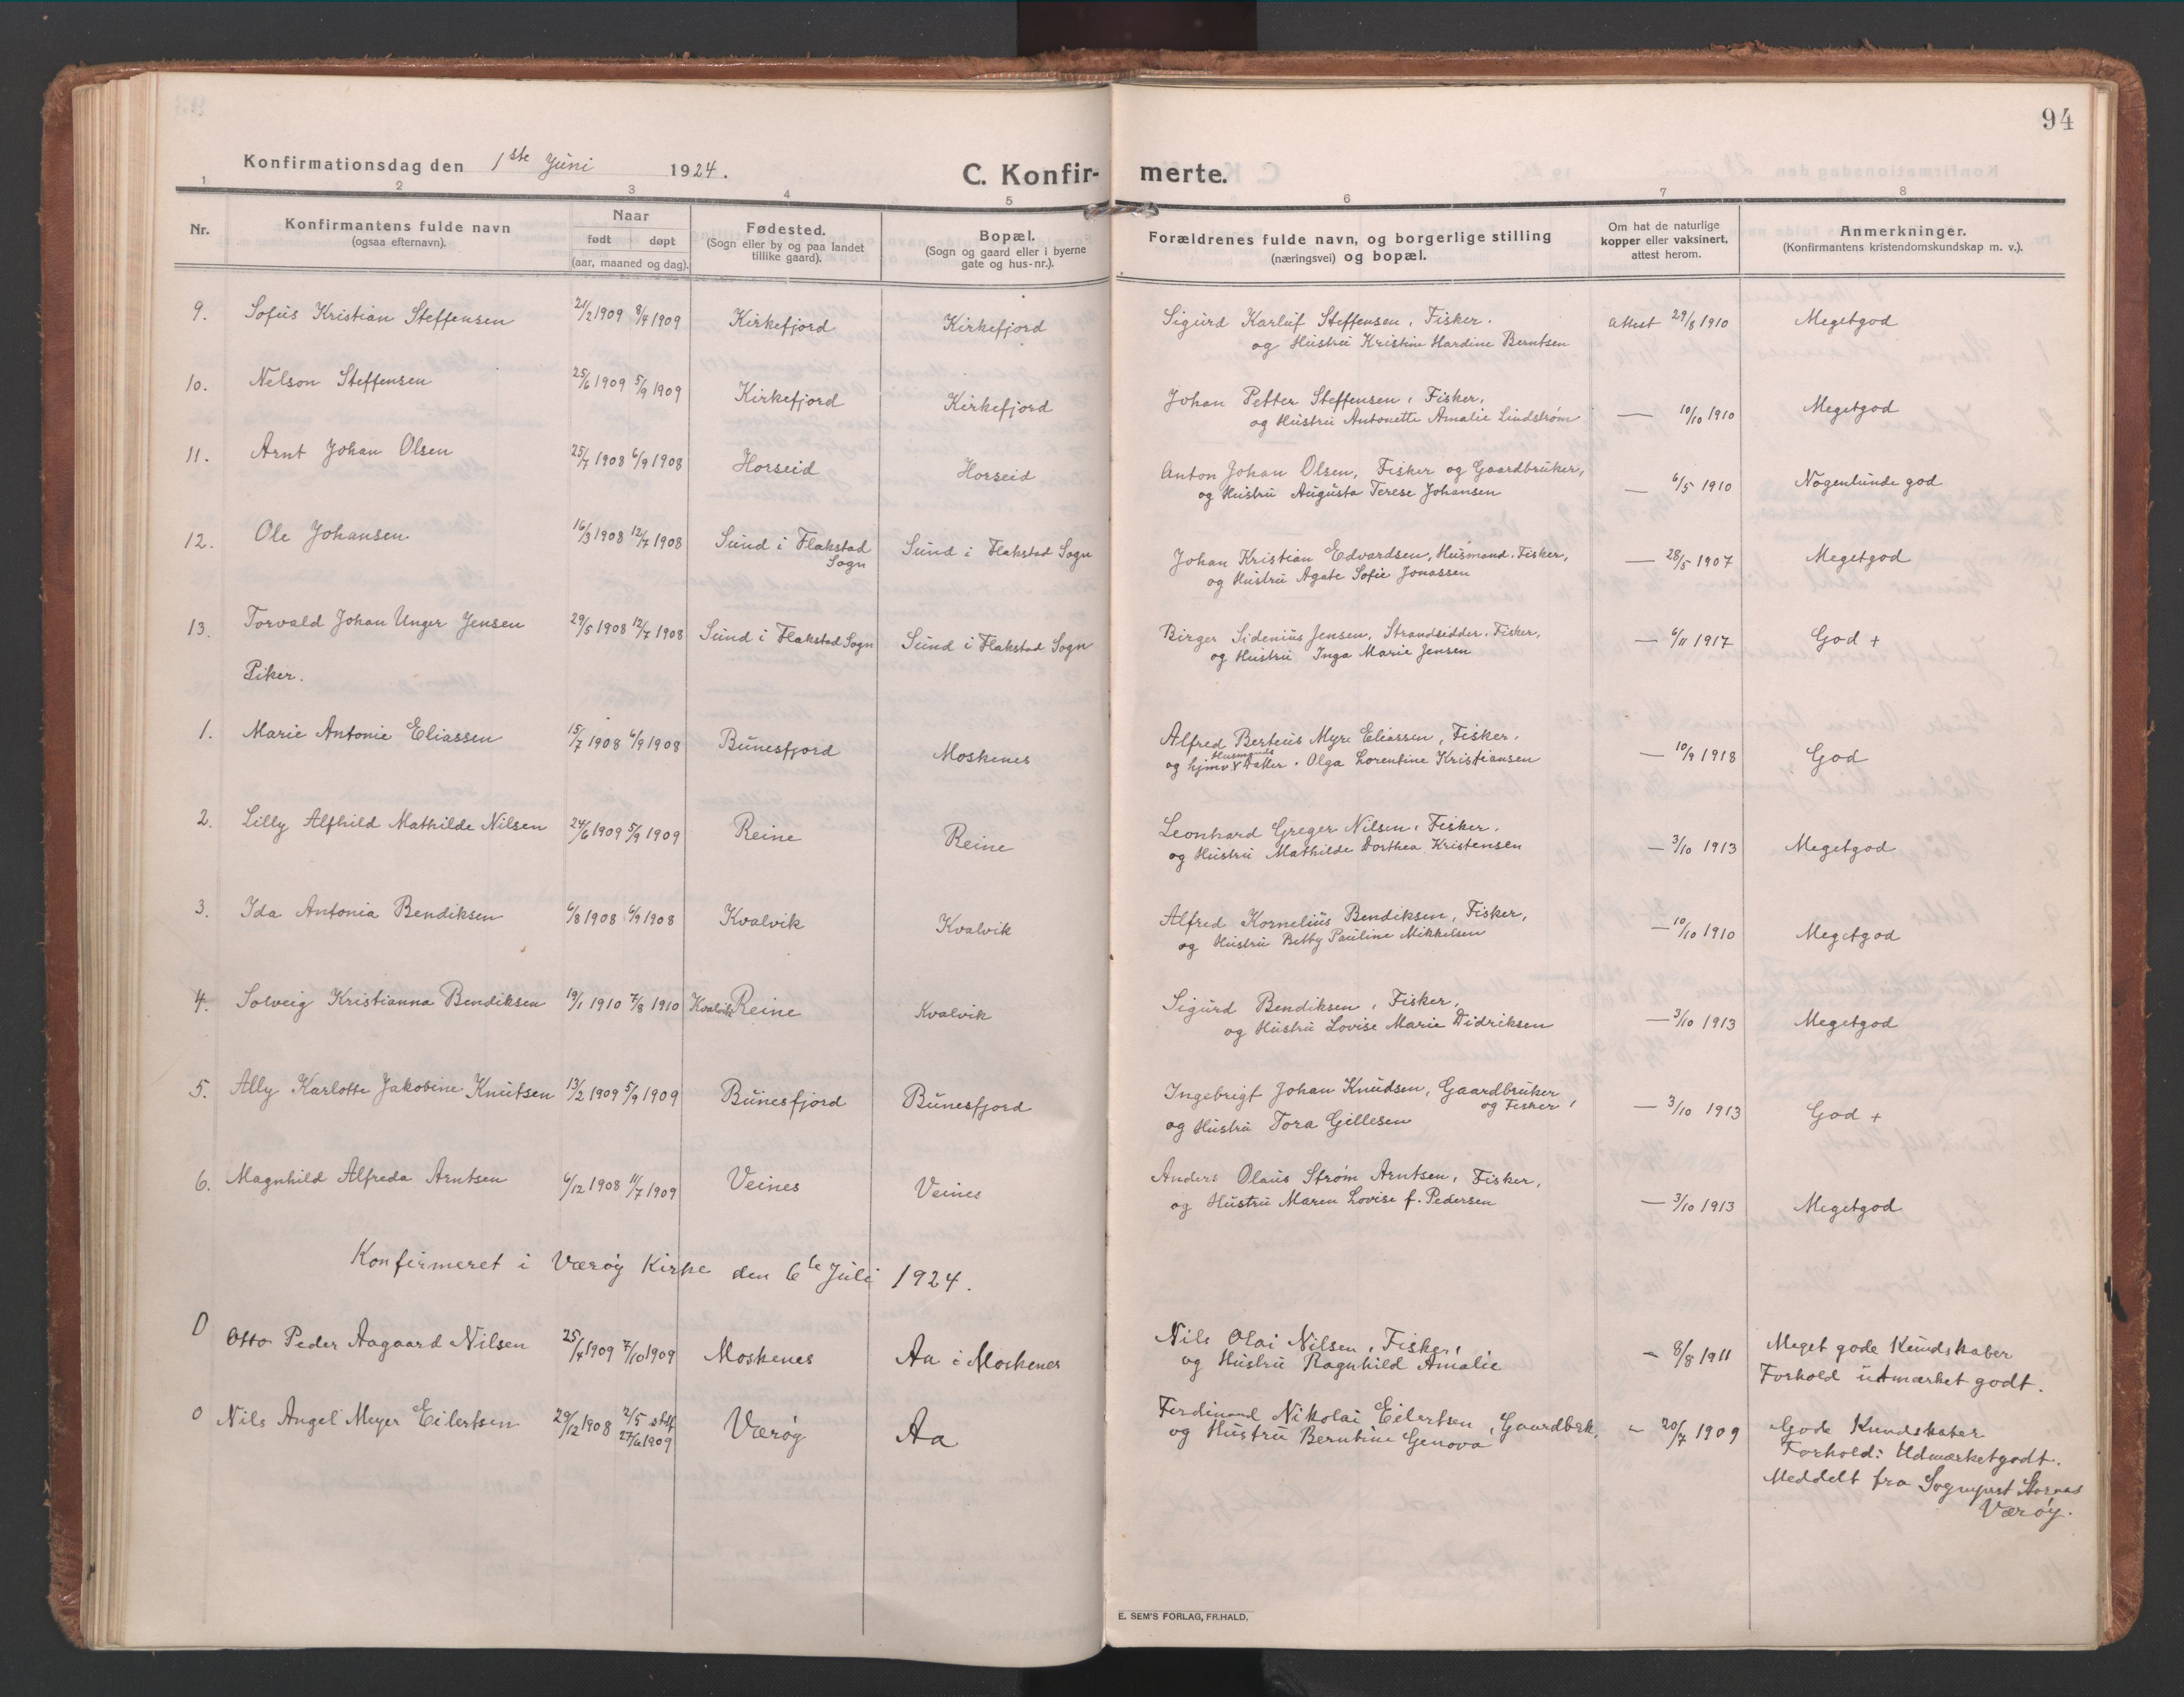 94
Konfirmationsdag den 1ste Juni 1924.
C. Konfir- merte.
1 2 3 4 5 6 7 8
Nr.
Konfirmantens fulde navn
(ogsaa efternavn).
Naar
født døpt
(aar, maaned og dag).
Fødested.
(Sogn eller by og paa landet
tillike gaard).
Bopæl.
(Sogn og gaard eller i byerne
gate og hus-nr.).
Forældrenes fulde navn, og borgerlige stilling
(næringsvei) og bopæl.
Om hat de naturlige
kopper eller vaksinert,
attest herom.
Anmerkninger.
(Konfirmantens kristendomskundskap m. v.).
9. Sofus Kristian Steffensen 21/2 1909 8/4 1909 Kirkefjord Kirkefjord Sigurd Karluf Steffensen, Fisker. attest 29/8 1910 Megetgod
og Hustru Kristine Hardine Berntsen
10. Nelson Steffensen 25/6 1909 5/9 1909 Kirkefjord Kirkefjord Johan Petter Steffensen, Fisker, — 10/10 1910 Megetgod
og Hustru Antonette Amalie Lindstrøm
11. Arnt Johan Olsen 25/7 1908 6/9 1908 Horseid Horseid Anton Johan Olsen, Fisker og Gaardbruker, — 6/5 1910 Nogenlunde god
og Hustru Augusta Terese Johansen
12. Ole Johansen 16/3 1908 12/7 1908 Sund i Flakstad Sund i Flakstad Sogn Johan Kristian Edvardsen, Husmand. Fisker, — 28/5 1907 Megetgod
Sogn og Hustru Agate Sofie Jonassen
13. Torvald Johan Unger Jensen 29/5 1908 12/7 1908 Sund i Flakstad Sogn Sund i Flakstad Sogn Birger Sidenius Jensen, Strandsidder. Fisker, — 6/11 1917 God +
og Hustru Inga Marie Jensen
Piker.
1. Marie Antonie Eliassen 15/7 1908 6/9 1908 Bunesfjord Moskenes Alfred Berteus Myre Eliassen, Fisker, — 10/9 1918 God
Husmands
og hjmv Datter. Olga Lorentine Kristiansen
2. Lilly Alfhild Mathilde Nilsen 24/6 1909 5/9 1909 Reine Reine Leonhard Greger Nilsen, Fisker. — 3/10 1913 Megetgod
og Hustru Mathilde Dorthea Kristensen
3. Ida Antonia Bendiksen 6/8 1908 6/9 1908 Kvalvik Kvalvik Alfred Kornelius Bendiksen, Fisker, — 10/10 1910 Megetgod
og Hustru Betty Pauline Mikkelsen
4. Solveig Kristianna Bendiksen 19/1 1910 7/8 1910 Kvalvik Reine Kvalvik Sigurd Bendiksen, Fisker, — 3/10 1913 Megetgod
og Hustru Lovise Marie Didriksen
5. Ally Karlotte Jakobine Knutsen 13/2 1909 5/9 1909 Bunesfjord Bunesfjord Ingebrigt Johan Knudsen, Gaardbruker — 3/10 1913 God +
og Fisker,
og Hustru Tora Gillesen
6. Magnhild Alfreda Arntsen 6/12 1908 11/7 1909 Veines Veines Anders Olaus Strøm Arntsen, Fisker, — 3/10 1913 Megetgod
og Hustru Maren Lovise f. Pedersen
Konfirmeret i Værøy Kirke den 6te Juli 1924.
0 Otto Peder Aagaard Nilsen 25/4 1909 7/10 1909 Moskenes Aa i Moskenes Nils Olai Nilsen, Fisker, — 8/8 1911 Meget gode Kundskaber
og Hustru Ragnhild Amalie Forhold utmærket godt.
0 Nils Angel Meyer Eilertsen 29/12 1908 2/5 stdf Værøy Aa Ferdinand Nikolai Eilertsen, Gaardbrk, — 20/7 1909 Gode Kundskaber
27/6 1909 og Hustru Berntine Genova Forhold: Udmærketgodt.
Meddelt fra Sogneprest
Værøy.
E. SEM'S FORLAG, FR.HALD,